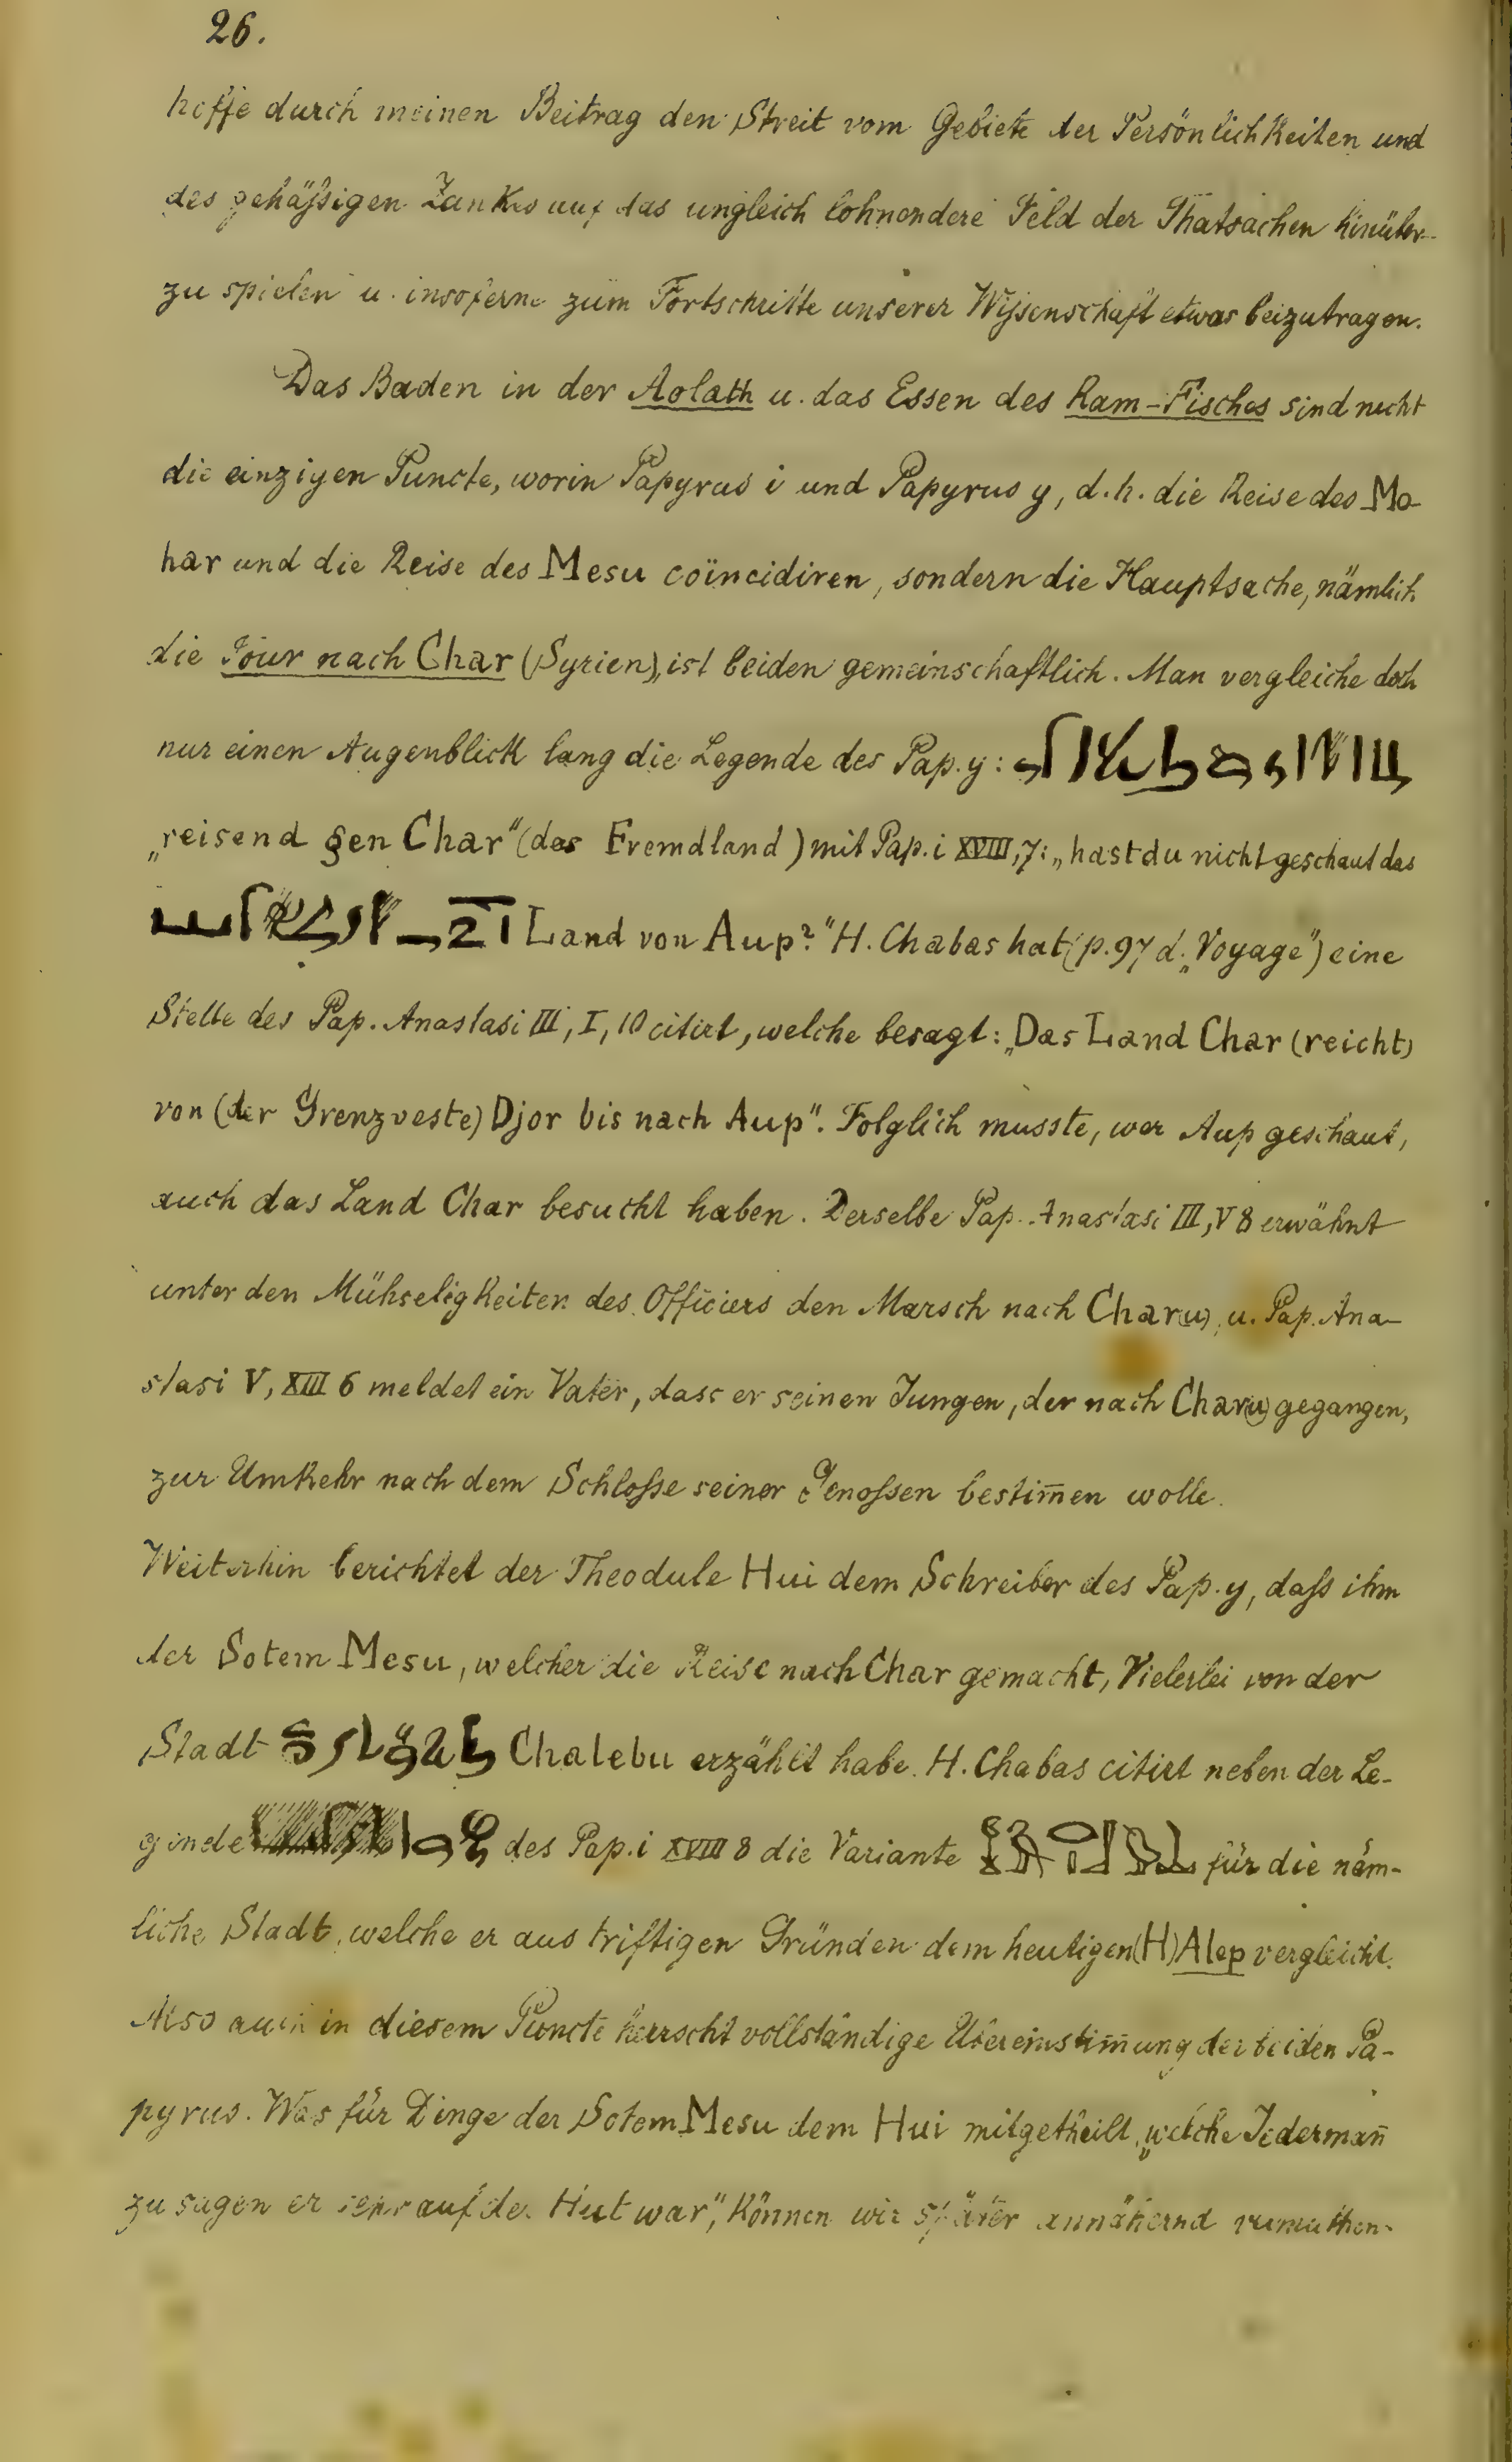 26.
hoffe durch meinen Beitrag den Streit vom Gebiete der Persönlichkeiten und
des gehäßigen Zankes auf das ungleich lohnendere Feld der Thatsachen hinüber-
zu spielen u. insoferne zum Fortschritte unserer Wißenschaft etwas beizutragen.
Das Baden in der Aolath u. das Essen des Ram-Fisches sind nicht
die einzigen Puncte, worin Papyrus i und Papyrus y, d.h. die Reise des Mo-
har und die Reise des Mesu coïncidiren, sondern die Hauptsache, nämlich
die Tour nach Char (Syrien), ist beiden gemeinschaftlich. Man vergleiche doch
nur einen Augenblick lang die Legende des Pap. y:
„reisend gen Char" (das Fremdland) mit Pap. i XVIII, 7: „hast du nicht geschaut das
Land von Aup?" H. Chabas hat (p. 97 d. „Voyage") eine
Stelle des Pap. Anastasi III, I, 10 citirt, welche besagt: „Das Land Char (reicht)
von (der Grenzveste) Djor bis nach Aup". Folglich musste, wer Aup geschaut,
auch das Land Char besucht haben. Derselbe Pap. Anastasi III, V 8 erwähnt
unter den Mühseligkeiten des Officiers den Marsch nach Char(u), u. Pap. Ana-
stasi V, XIII 6 meldet ein Vater, dass er seinen Jungen, der nach Char(u) gegangen,
zur Umkehr nach dem Schloße seiner Genoßen bestim̄en wolle.
Weiterhin berichtet der Theodule Hui dem Schreiber des Pap. y, daß ihm
der Sotem Mesu, welcher die Reise nach Char gemacht, Vielerlei von der
Stadt Chalebu erzählt habe. H. Chabas citirt neben der Le-
gende des Pap. i XVIII 8 die Variante für die näm-
liche Stadt, welche er aus triftigen Gründen dem heutigen (H)Alep vergleicht.
Also auch in diesem Puncte herrscht vollständige Übereinstim̄ung der beiden Pa-
pyrus. Was für Dinge der Sotem Mesu dem Hui mitgetheilt, „welche Jederman̄
zu sagen er sehr auf der Hut war", können wir später annähernd vermuthen.